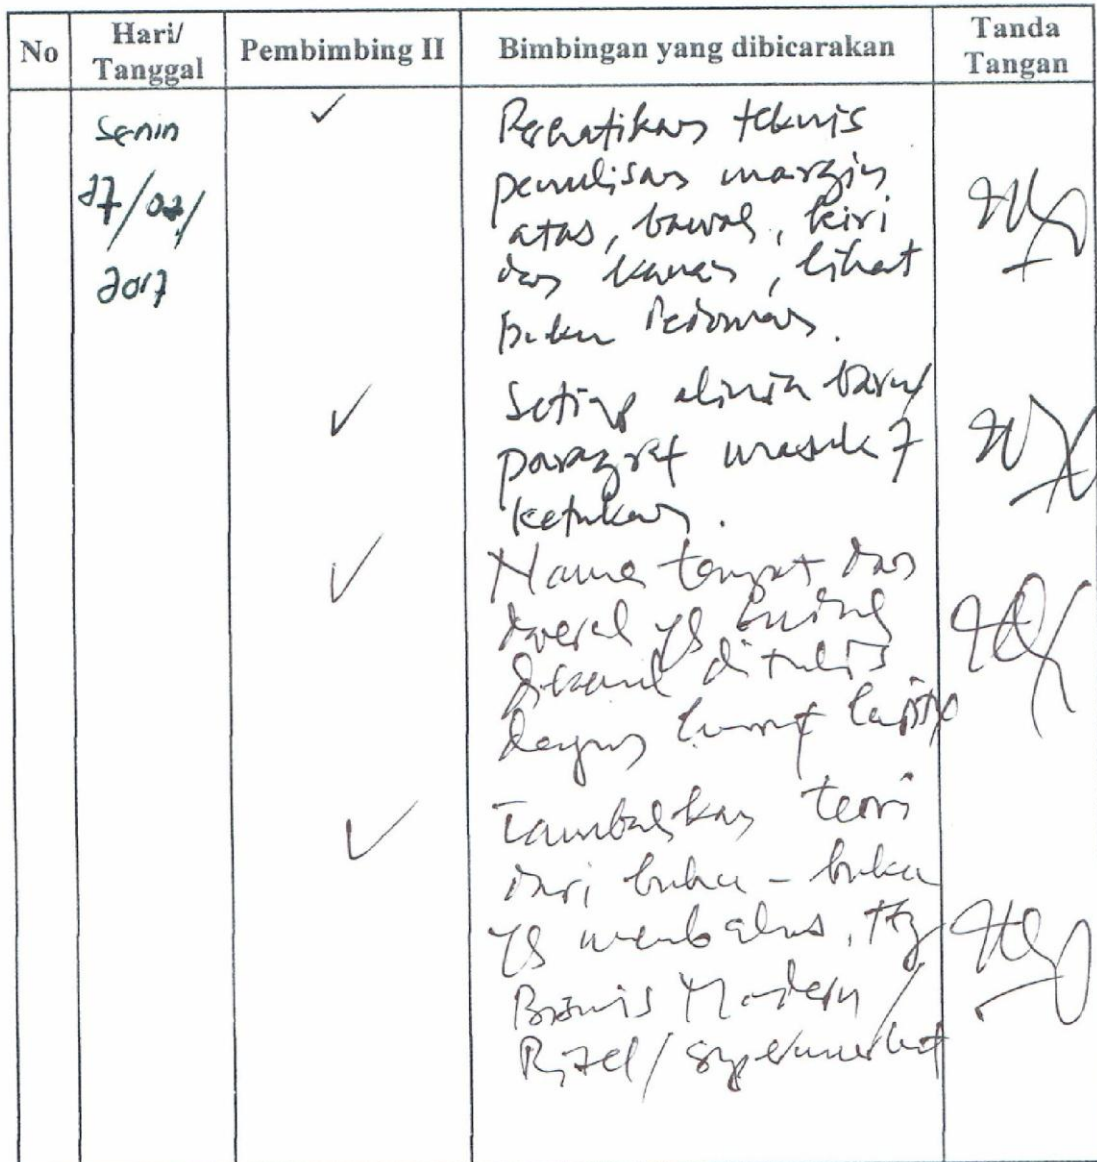 No
Hari/
Tanggal
Pembimbing II
Bimbingan yang dibicarakan
Tanda
Tangan
Senin
2017
Perhatikan teknis
penulisan margin
atas, bawah, kiri
dan kanan, lihat
buku Pedoman.
Setiap alinia baru/
paragraf masuk 7
ketukan.
Nama tempat dan
daerah yg
ditulis
dengan huruf
Tambahkan teori
dari buku - buku
yg membahas, ttg
Bisnis Modern /
Ritel / supermarket